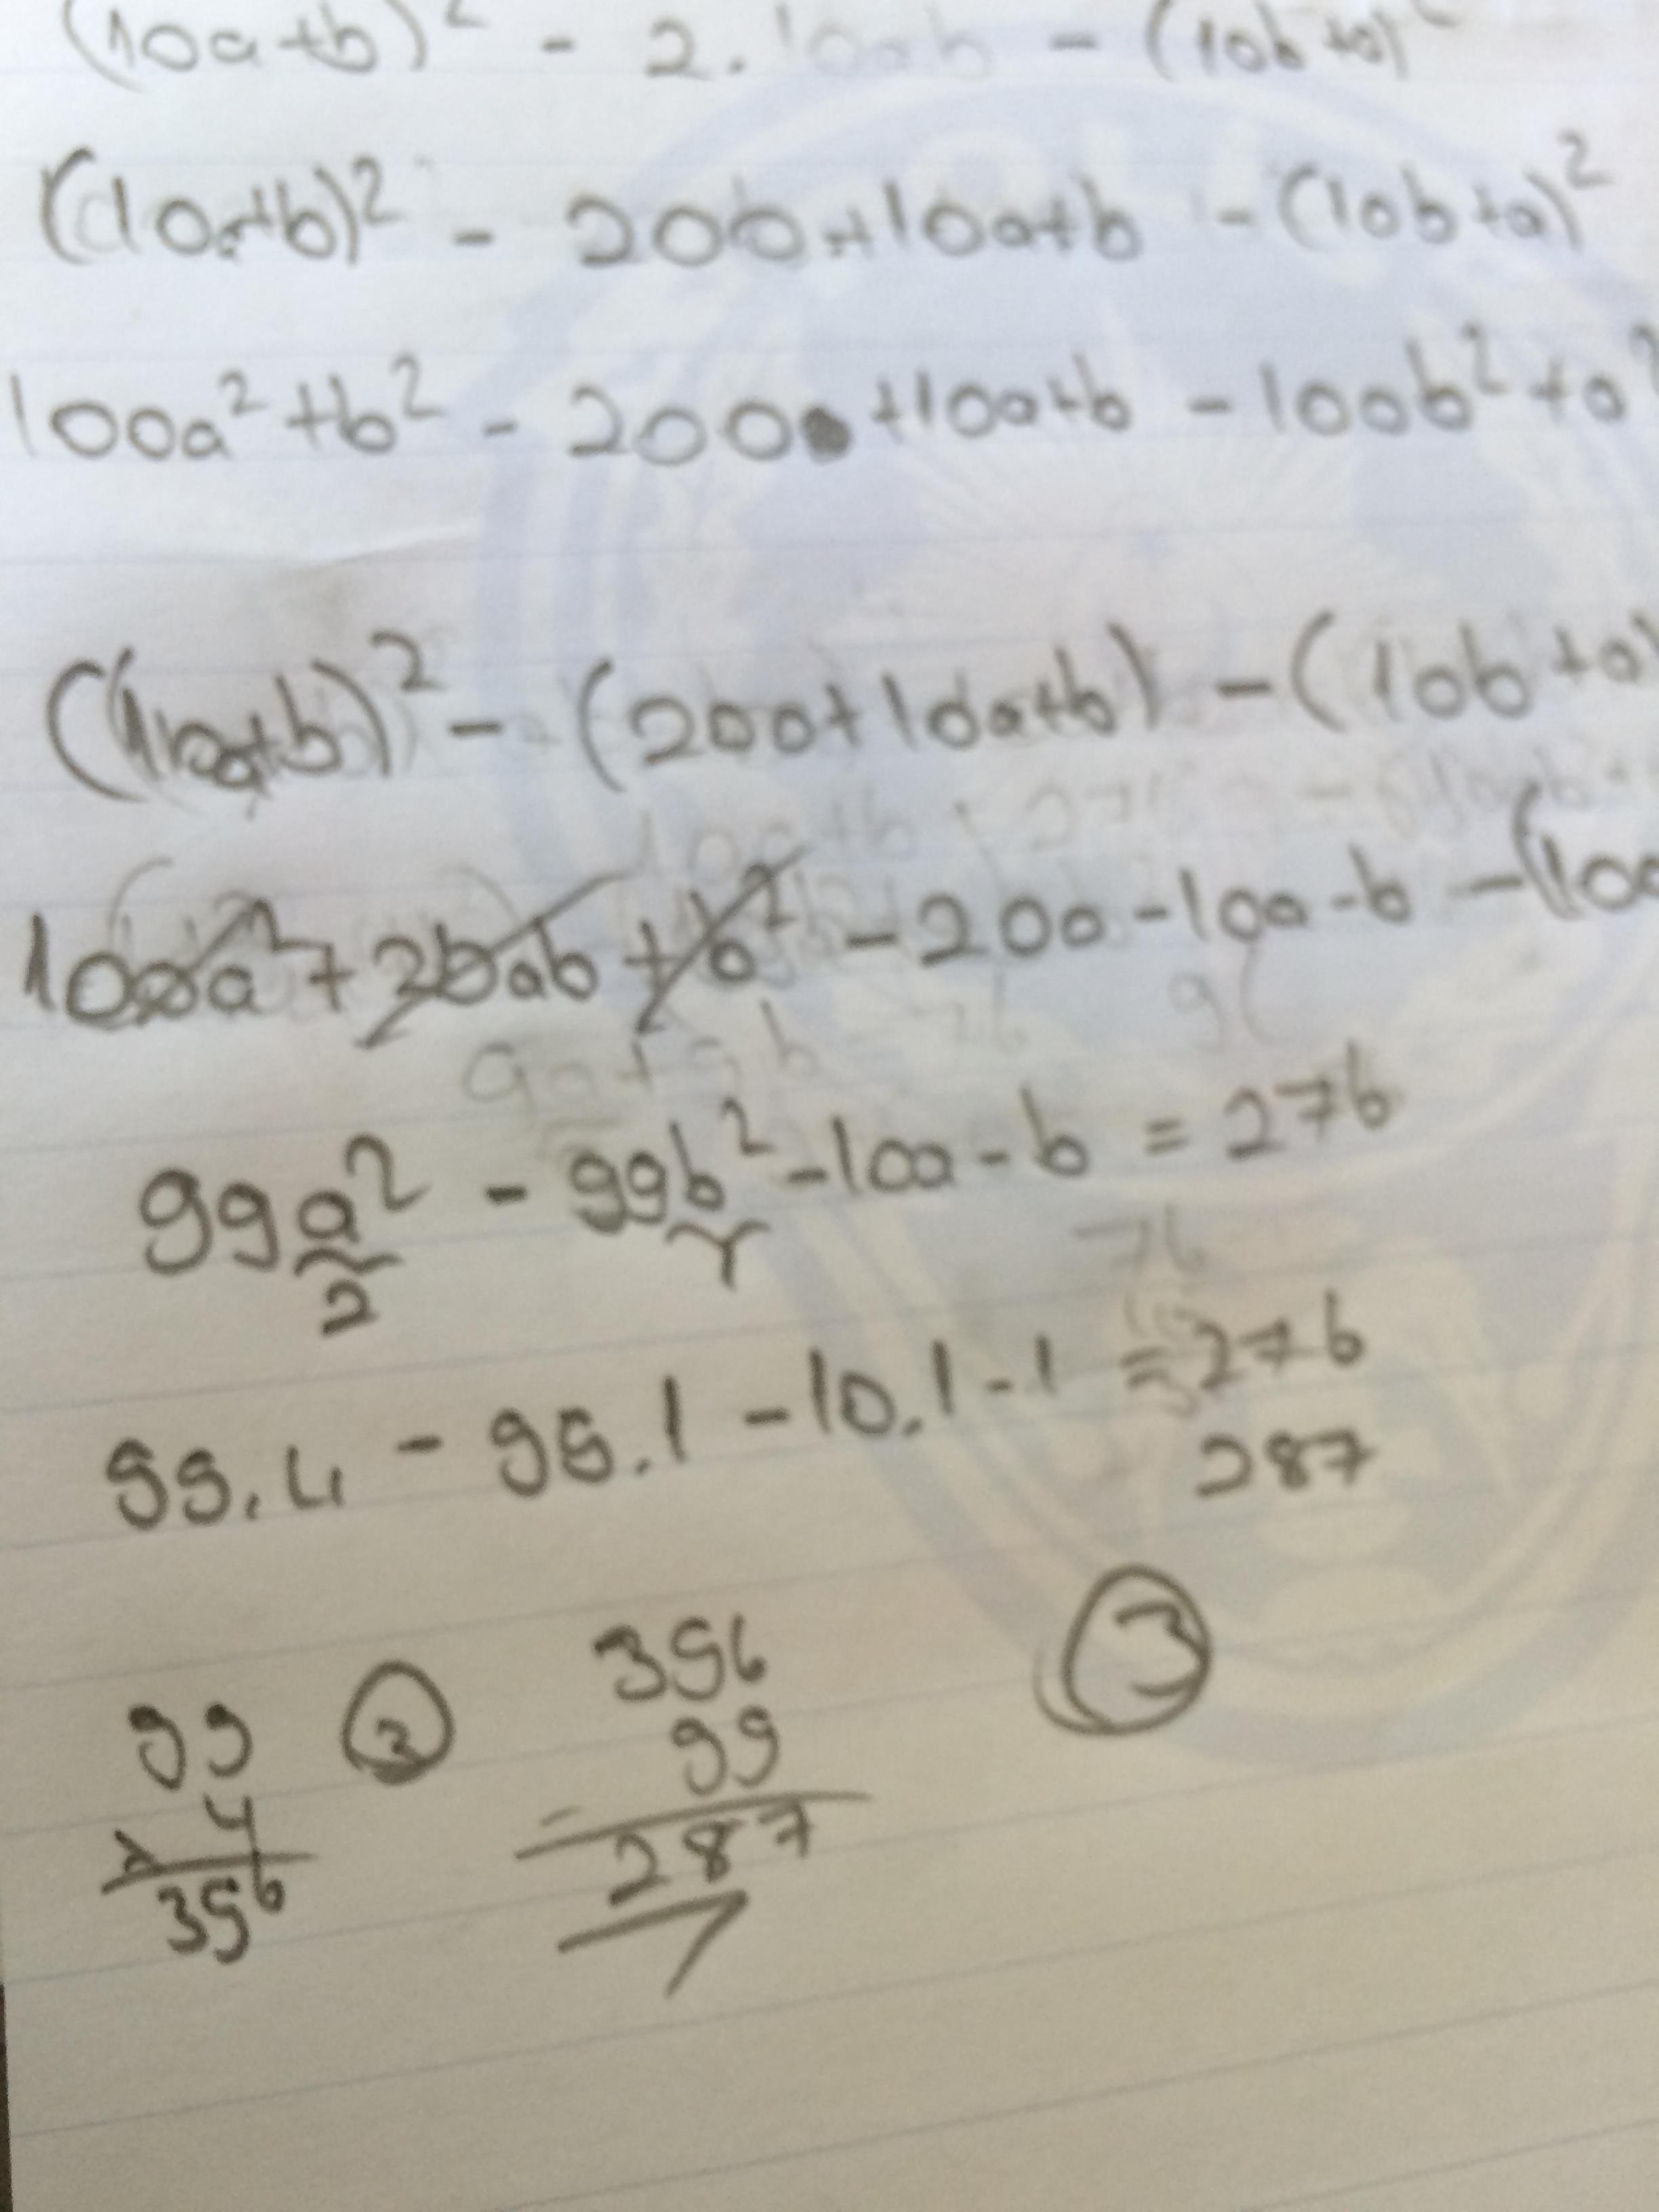 (10a+b)² - 2. 10ab - (10b+a)²
(10a+b)² - 200+10a+b - (10b+a)²
100a²+b² - 200 +10a+b - 100b²+a²
(10a+b)² - (200+10a+b) - (10b+a)
100a²+20ab+b² - 200 - 10a - b - (100
99a² - 99b² - 10a - b = 276
2
99.4 - 99.1 - 10.1 - 1 = 276
287
3
99 2 396
4 99
x
396 287